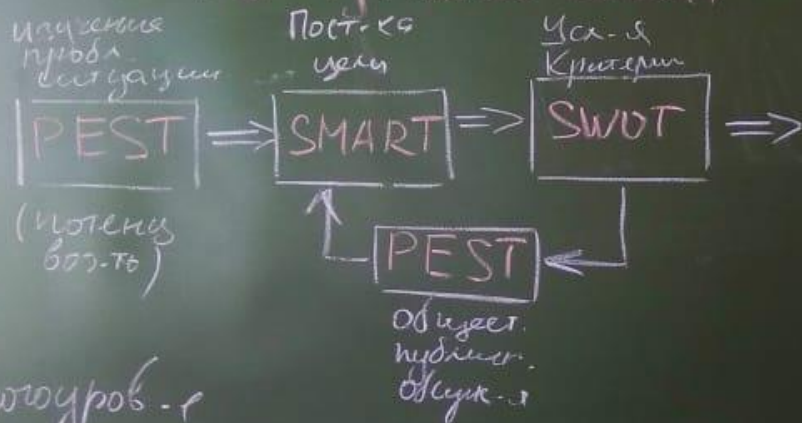 изучения
пробл.
ситуации
PEST
(потенц
воз-ть)
Пост-ка
цели
SMART
Усл-я
Критерии
SWOT
PEST
Общест.
публичн.
обсуж-я
огоуров-е